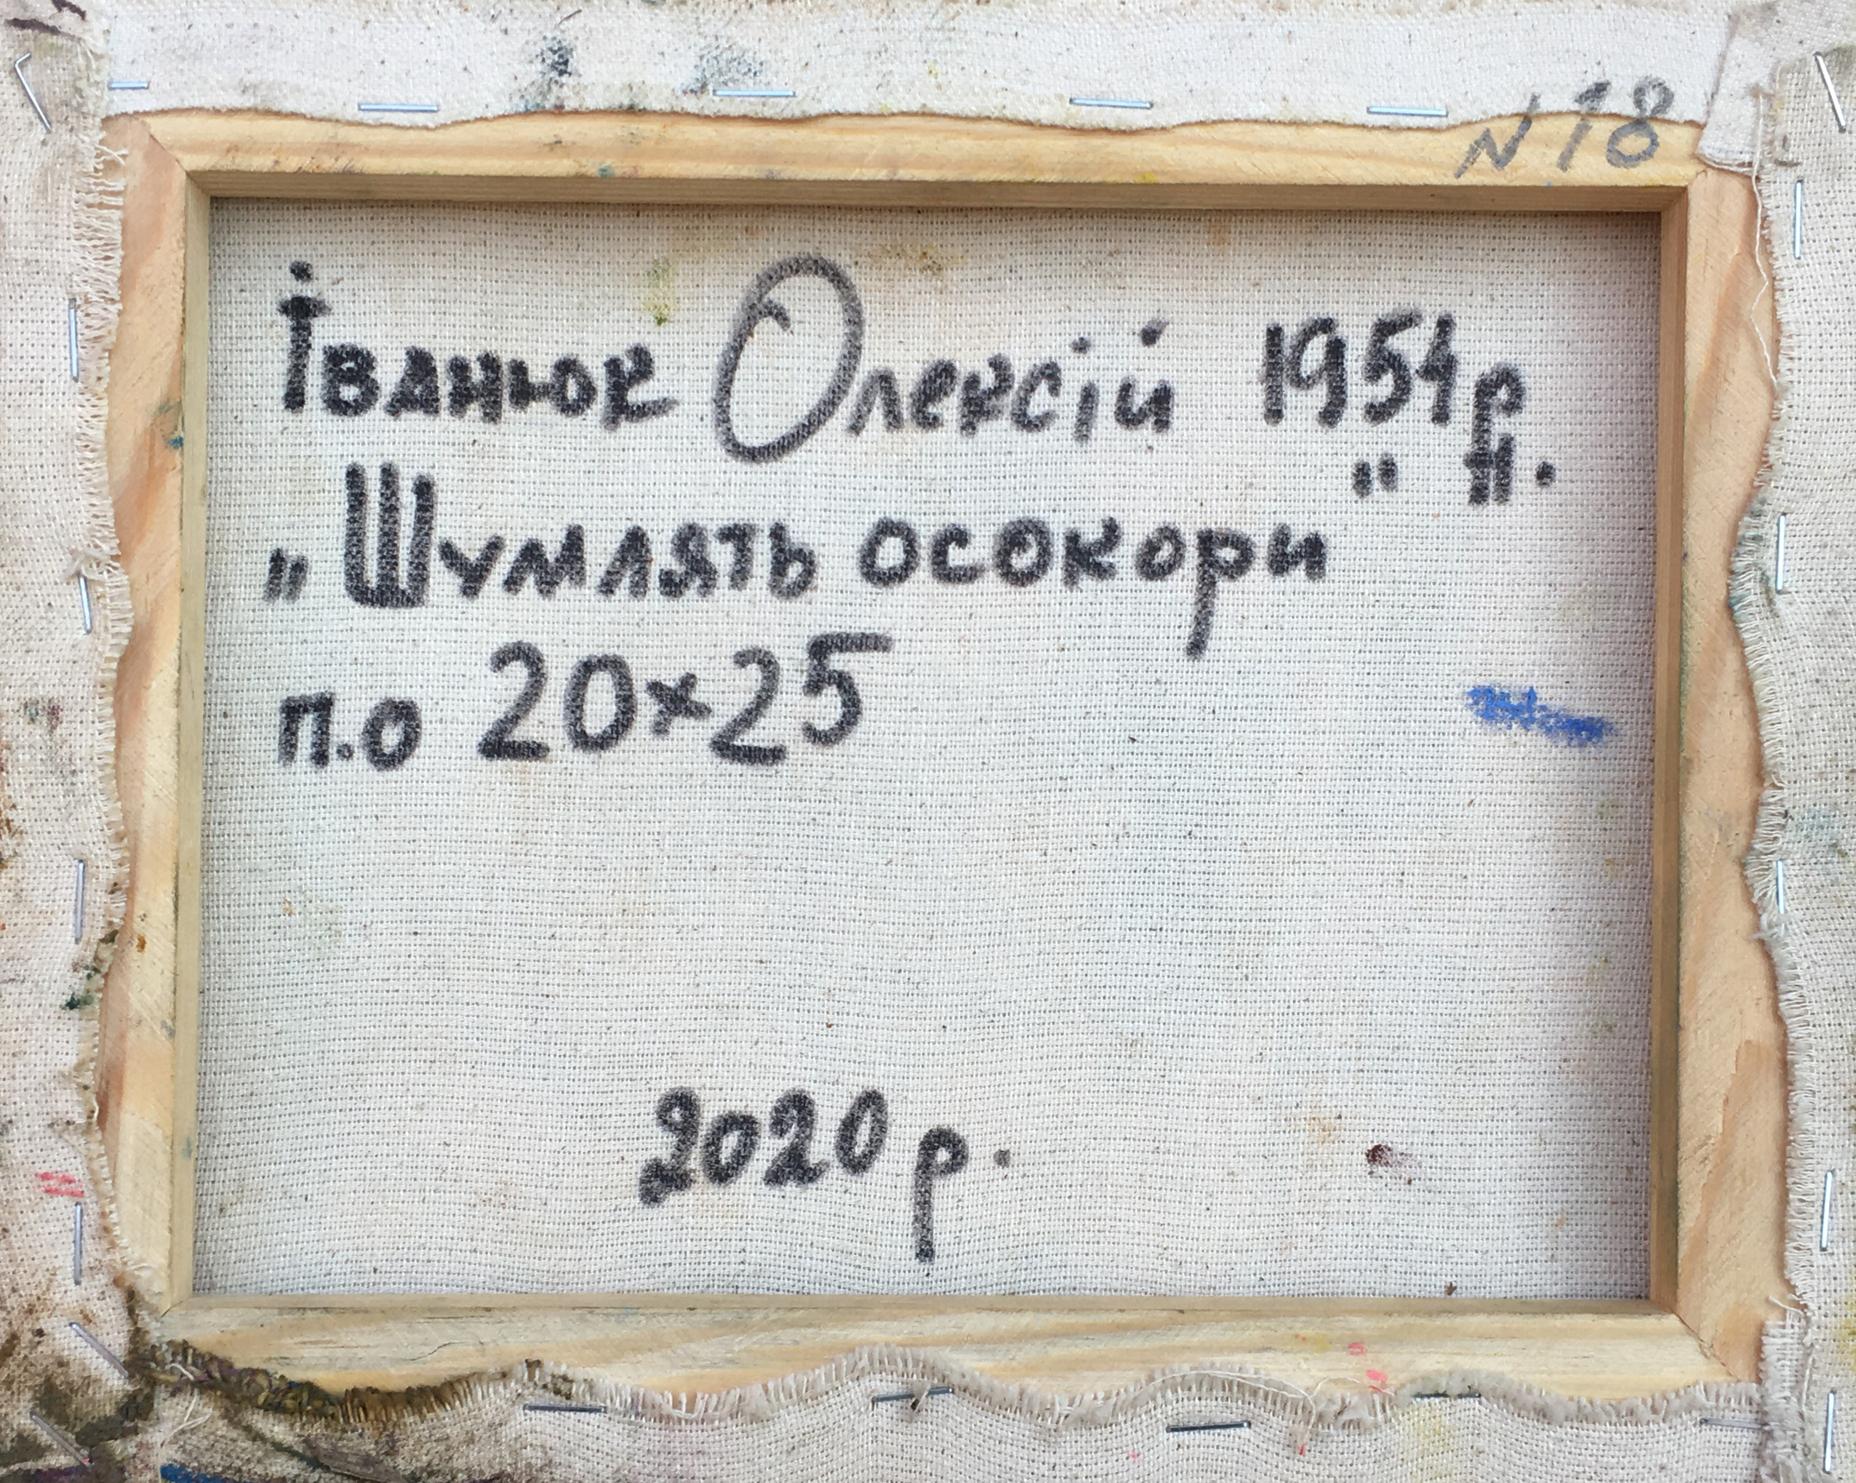 N 18
Іванюк Олексій 1954р
н.
„Шумлять осокори"
п.о 20×25
2020р.